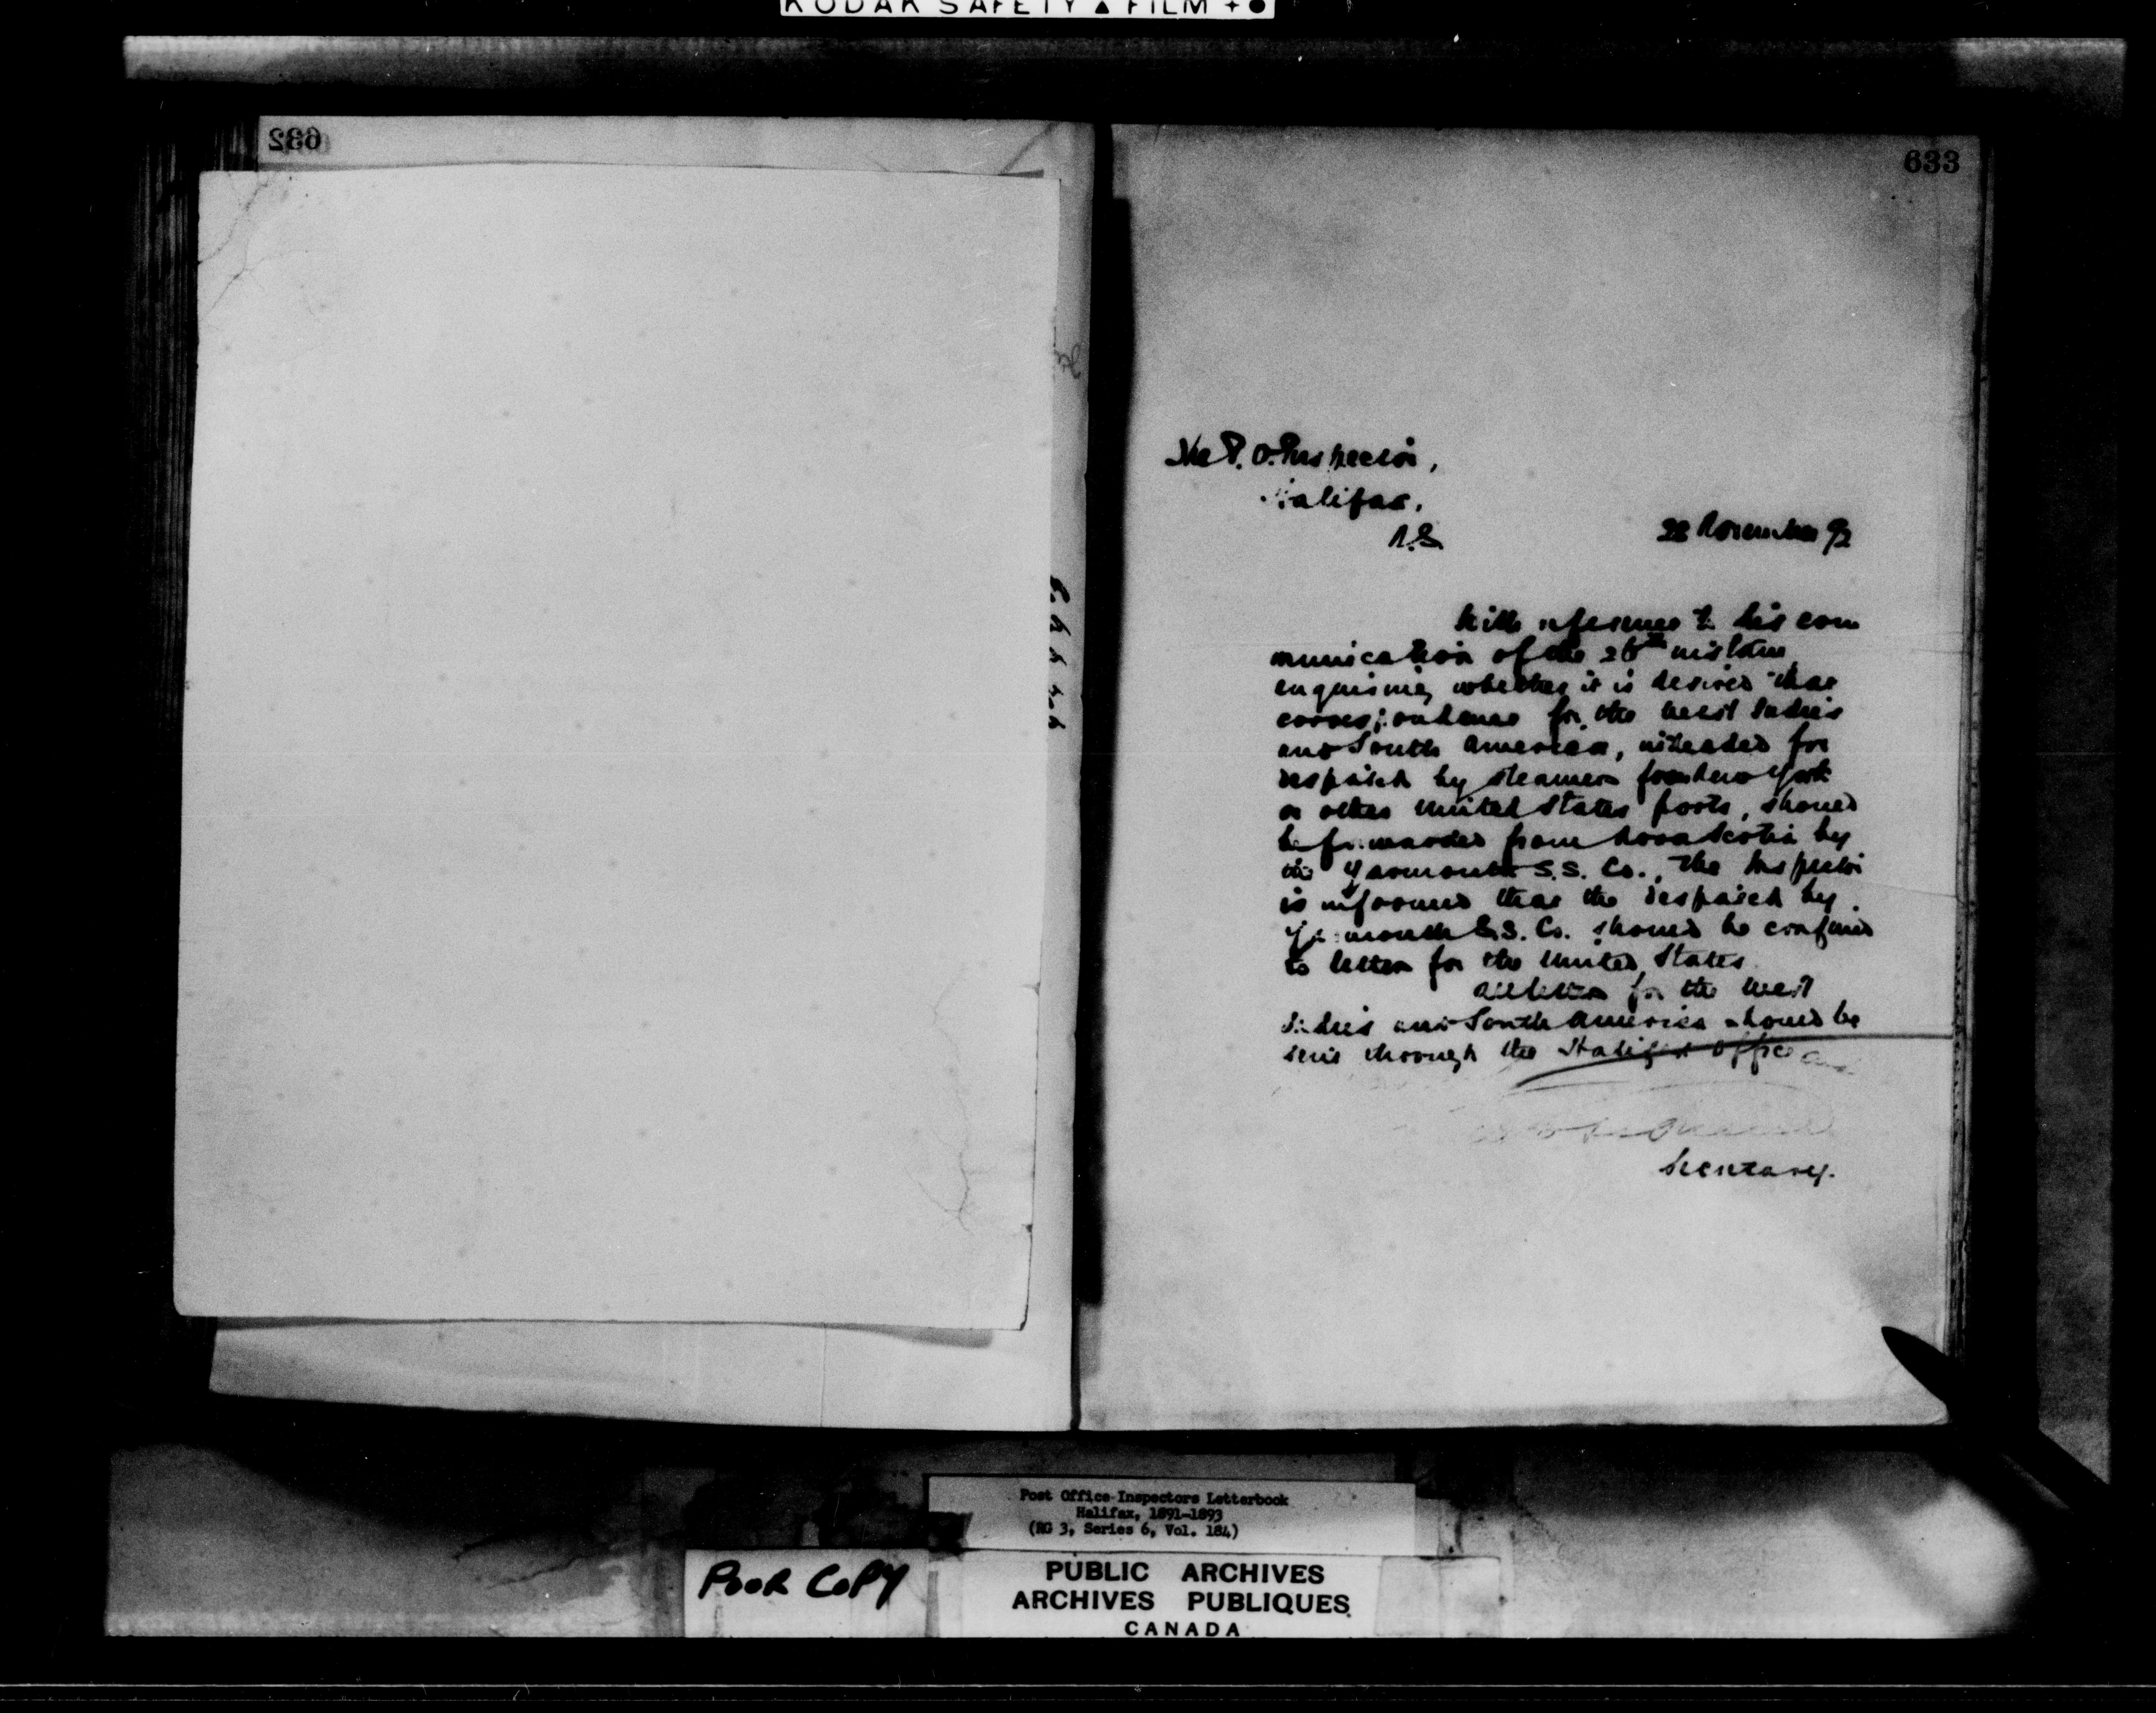 KODAK SAFETY ▲ FILM +●
632
633
The P. O. Inspector,
Halifax,
N.S.
28 November 92
With reference to his com
munication of the 26th instant
enquiring whether it is desired that
correspondence for the West Indies
and South America, intended for
despatch by steamer from New York
or other United States ports, should
be forwarded from Nova Scotia by
the Yarmouth S.S. Co., the Inspector
is informed that the despatch by
Yarmouth S.S. Co. should be confined
to letters for the United States.
All letters for the West
Indies and South America should be
sent through the Halifax Office
Secretary.
Post Office Inspectors Letterbook
Halifax, 1891-1893
(RG 3, Series 6, Vol. 184)
POOR COPY
PUBLIC ARCHIVES
ARCHIVES PUBLIQUES
CANADA